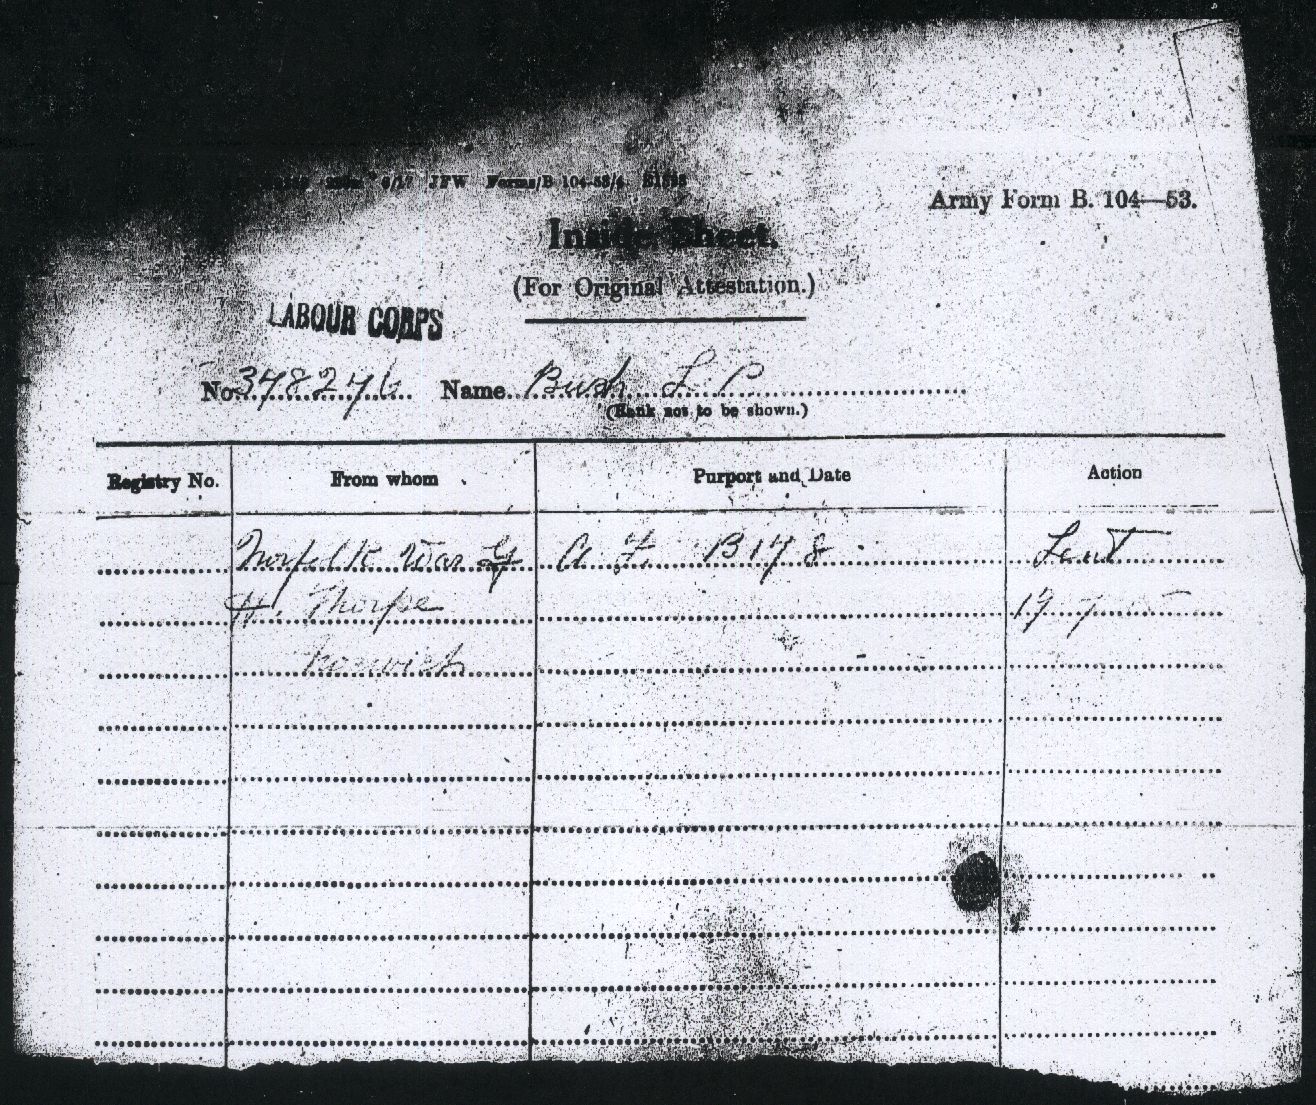 6/17 JFW Forms/B 104-53/4
Army Form B. 104—53.
Inside Sheet.
(For Original Attestation.)
LABOUR CORPS
No. 348246 Name Bush L P
(Rank not to be shown.)
Registry No. From whom Purport and Date Action
Norfolk War A F B178 Sent
H. Thorpe 19
Norwich